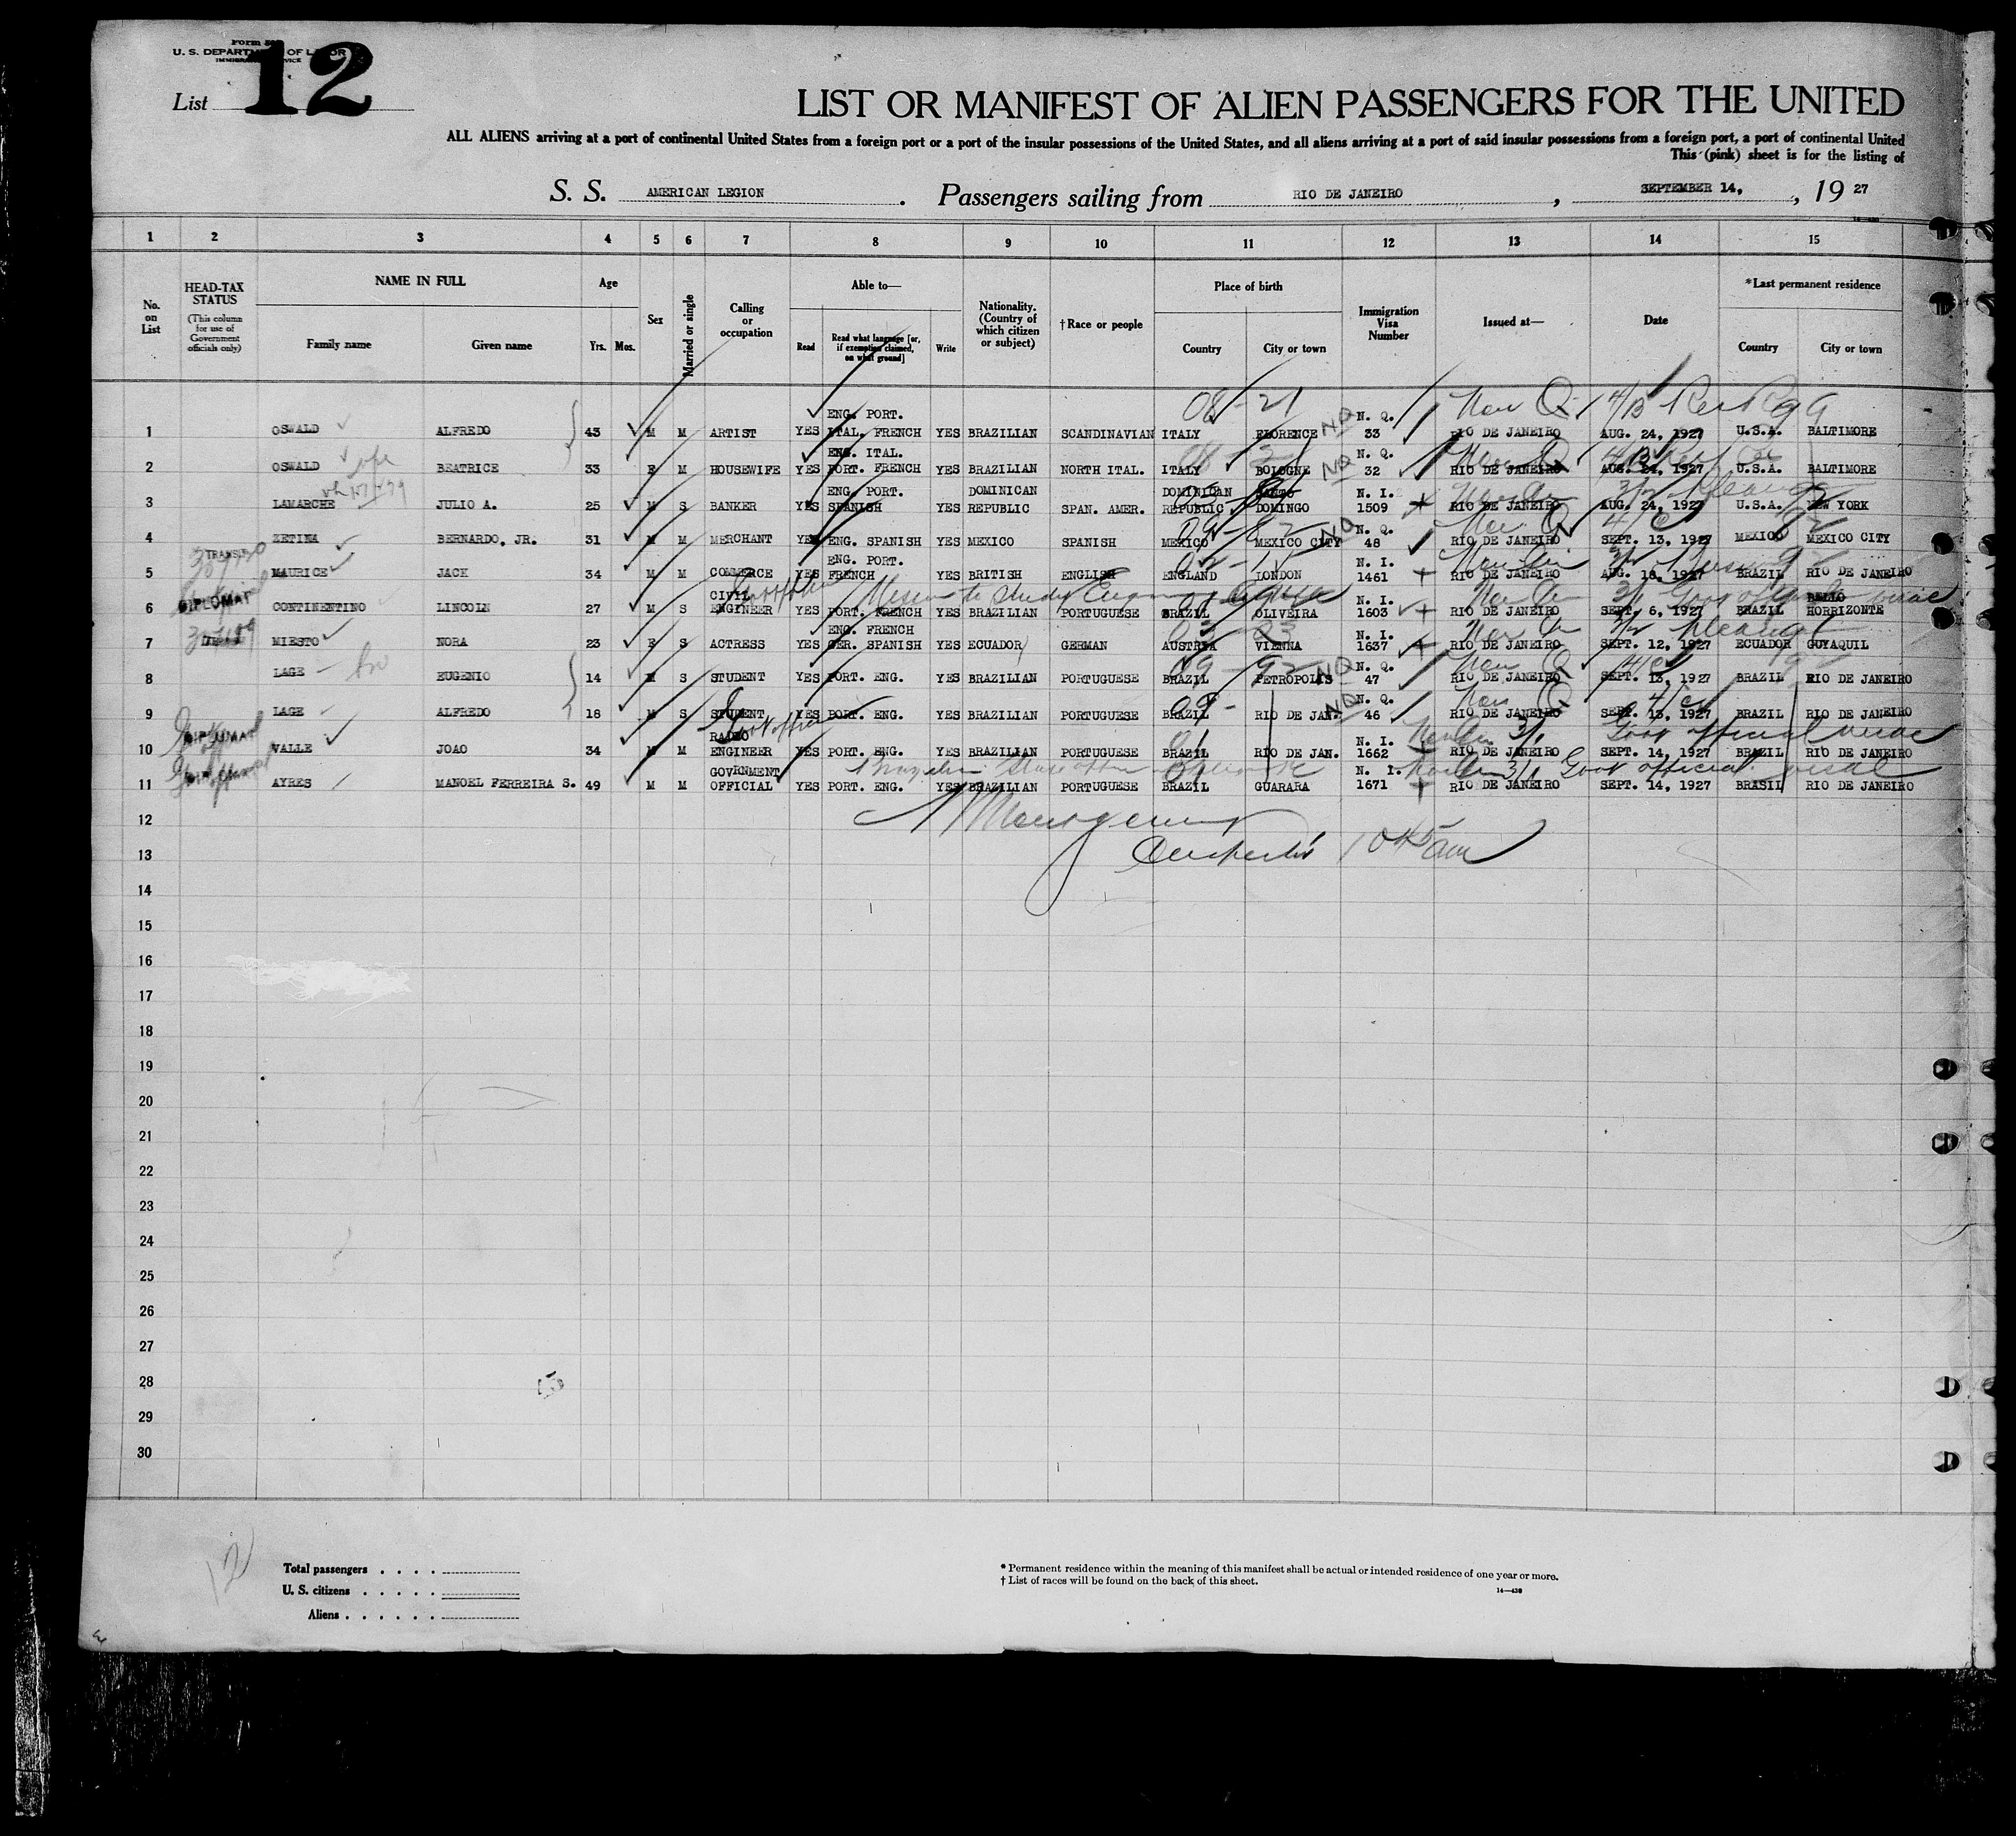 Form 500
U. S. DEPARTMENT OF LABOR
IMMIGRATION SERVICE
List 12
LIST OR MANIFEST OF ALIEN PASSENGERS FOR THE UNITED
ALL ALIENS arriving at a port of continental United States from a foreign port or a port of the insular possessions of the United States, and all aliens arriving at a port of said insular possessions from a foreign port, a port of continental United
This (pink) sheet is for the listing of
S. S. AMERICAN LEGION . Passengers sailing from RIO DE JANEIRO , SEPTEMBER 14, , 19 27
1 2 3 4 5 6 7 8 9 10 11 12 13 14 15
No. on List
HEAD-TAX STATUS (This column for use of Government officials only)
NAME IN FULL
Family name Given name
Age
Yrs. Mos.
Sex
Married or single
Calling or occupation
Able to—
Read
Read what language [or, if exemption claimed, on what ground]
Write
Nationality. (Country of which citizen or subject)
†Race or people
Place of birth
Country City or town
Immigration Visa Number
Issued at—
Date
*Last permanent residence
Country City or town
1 OSWALD ALFREDO 43 M M ARTIST YES ENG. PORT. ITAL. FRENCH YES BRAZILIAN SCANDINAVIAN ITALY FLORENCE N. Q. 33 RIO DE JANEIRO AUG. 24, 1927 U.S.A. BALTIMORE
2 OSWALD BEATRICE 33 F M HOUSEWIFE YES ENG. ITAL. PORT. FRENCH YES BRAZILIAN NORTH ITAL. ITALY BOLOGNE N. Q. 32 RIO DE JANEIRO AUG. 24, 1927 U.S.A. BALTIMORE
3 LAMARCHE JULIO A. 25 M S BANKER YES ENG. PORT. SPANISH YES DOMINICAN REPUBLIC SPAN. AMER. DOMINICAN REPUBLIC SANTO DOMINGO N. I. 1509 RIO DE JANEIRO AUG. 24, 1927 U.S.A. NEW YORK
4 ZETINA BERNARDO, JR. 31 M M MERCHANT YES ENG. SPANISH YES MEXICO SPANISH MEXICO MEXICO CITY N. Q. 48 RIO DE JANEIRO SEPT. 13, 1927 MEXICO MEXICO CITY
5 TRANSIT MAURICE JACK 34 M M COMMERCE YES ENG. PORT. FRENCH YES BRITISH ENGLISH ENGLAND LONDON N. I. 1461 RIO DE JANEIRO AUG. 18, 1927 BRAZIL RIO DE JANEIRO
6 DIPLOMAT CONTINENTINO LINCOLN 27 M S CIVIL ENGINEER YES PORT. FRENCH YES BRAZILIAN PORTUGUESE BRAZIL OLIVEIRA N. I. 1603 RIO DE JANEIRO SEPT. 6, 1927 BRAZIL BELLO HORRIZONTE
7 MIESTO NORA 23 F S ACTRESS YES ENG. FRENCH GER. SPANISH YES ECUADOR GERMAN AUSTRIA VIENNA N. I. 1637 RIO DE JANEIRO SEPT. 12, 1927 ECUADOR GUYAQUIL
8 LAGE EUGENIO 14 M S STUDENT YES PORT. ENG. YES BRAZILIAN PORTUGUESE BRAZIL PETROPOLIS N. Q. 47 RIO DE JANEIRO SEPT. 13, 1927 BRAZIL RIO DE JANEIRO
9 LAGE ALFREDO 18 M S STUDENT YES PORT. ENG. YES BRAZILIAN PORTUGUESE BRAZIL RIO DE JAN. N. Q. 46 RIO DE JANEIRO SEPT. 13, 1927 BRAZIL RIO DE JANEIRO
10 DIPLOMAT VALLE JOAO 34 M M RADIO ENGINEER YES PORT. ENG. YES BRAZILIAN PORTUGUESE BRAZIL RIO DE JAN. N. I. 1662 RIO DE JANEIRO SEPT. 14, 1927 BRAZIL RIO DE JANEIRO
11 AYRES MANOEL FERREIRA S. 49 M M GOVERNMENT OFFICIAL YES PORT. ENG. YES BRAZILIAN PORTUGUESE BRAZIL GUARARA N. I. 1671 RIO DE JANEIRO SEPT. 14, 1927 BRASIL RIO DE JANEIRO
12
13
14
15
16
17
18
19
20
21
22
23
24
25
26
27
28
29
30
12
Total passengers
U. S. citizens
Aliens
* Permanent residence within the meaning of this manifest shall be actual or intended residence of one year or more.
† List of races will be found on the back of this sheet.
14—430